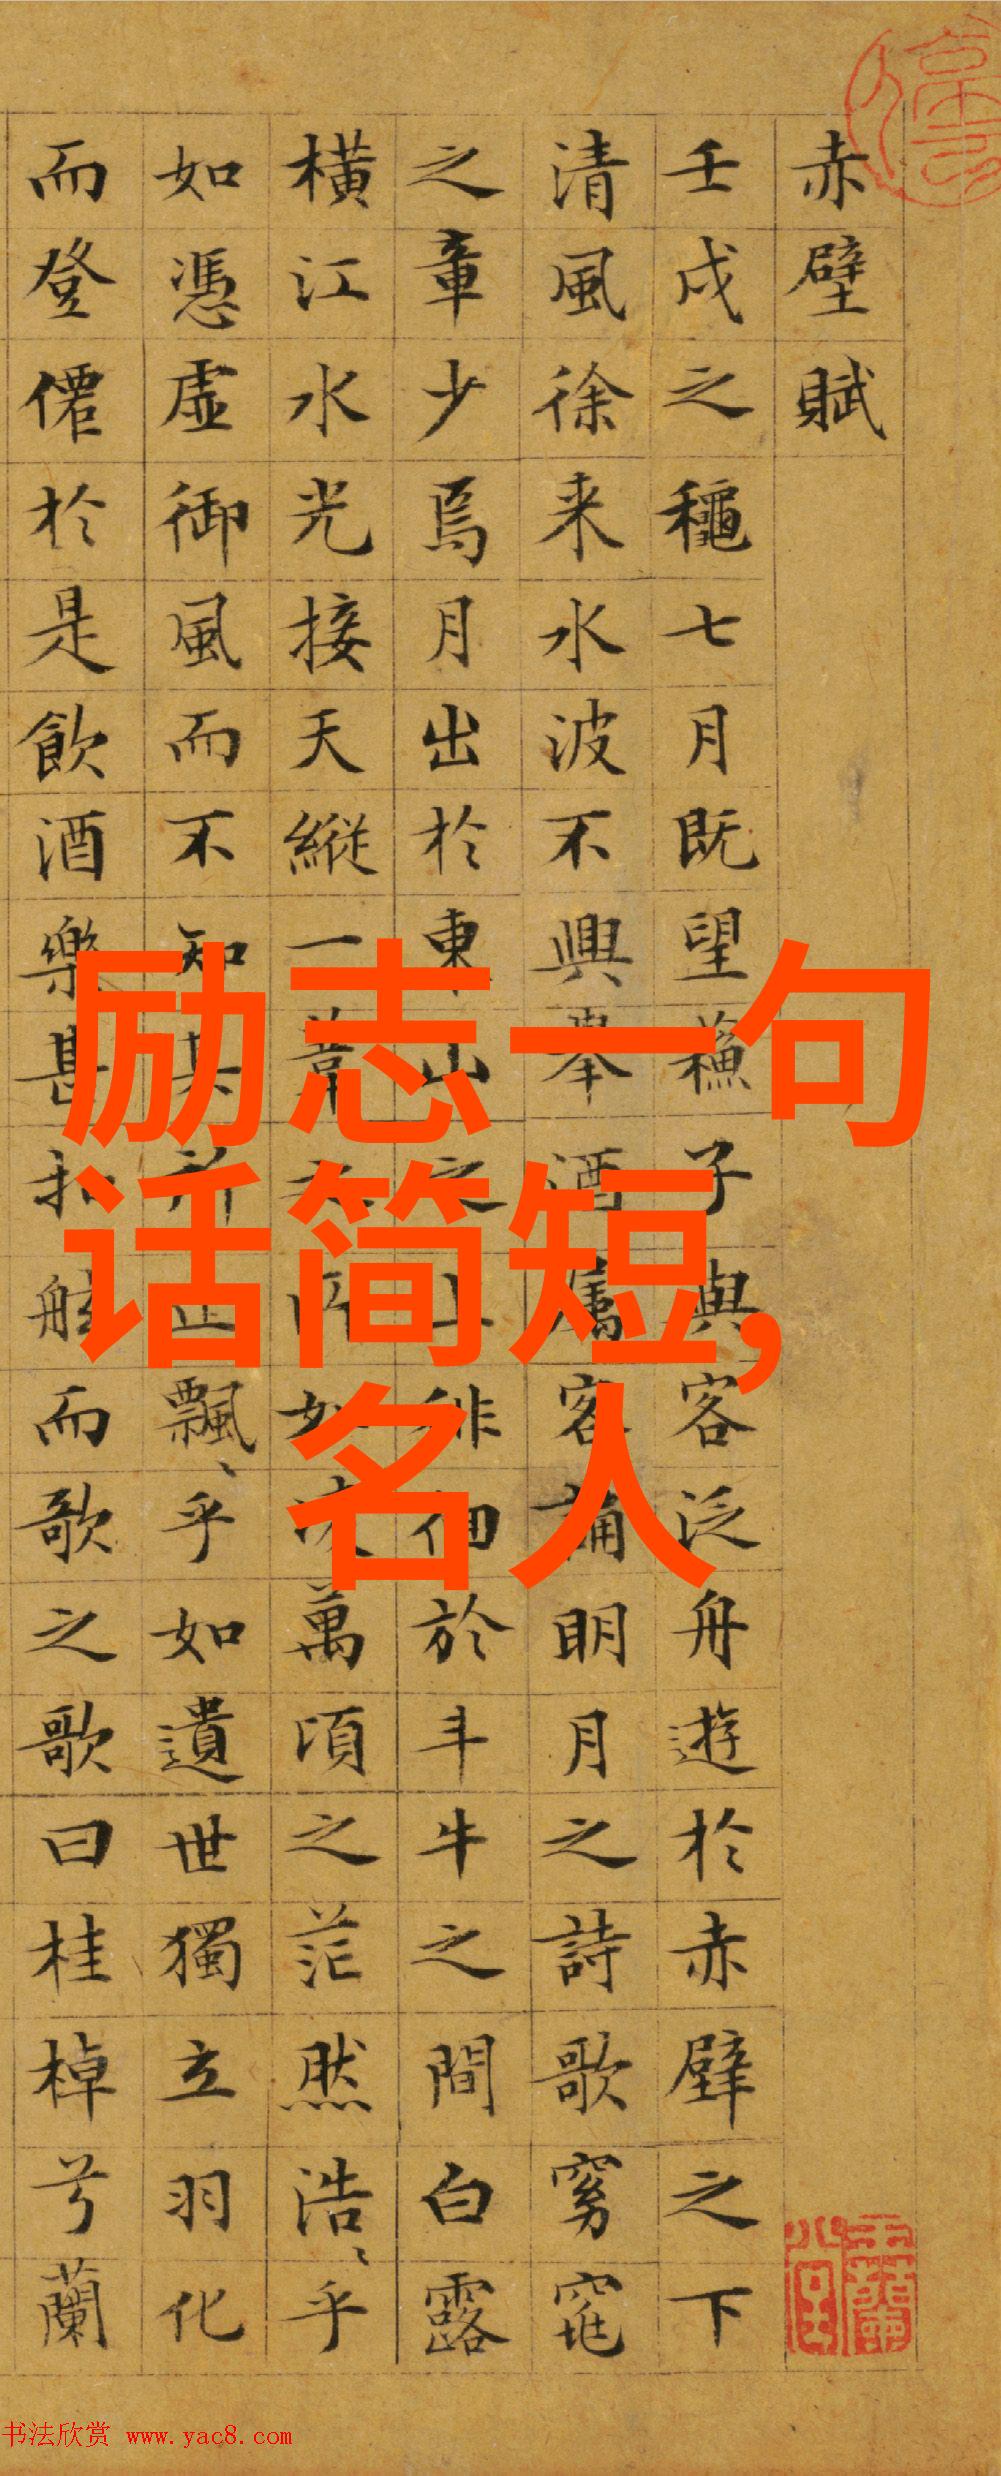 赤壁賦
壬戌之穐七月既望蘓子與客泛舟遊於赤壁之下
清風徐来水波不興舉酒属客誦明月之詩歌窈窕
之章少焉月出於東山之上徘徊於斗牛之間白露
横江水光接天縱一葦之所如凌萬頃之茫然浩、乎
如憑虚御風而不知其所止飄、乎如遺世獨立羽化
而登僊於是飲酒樂甚扣舷而歌之歌曰桂棹兮蘭
励志一句
话简短,
名人
书法欣赏 www.yac8.com